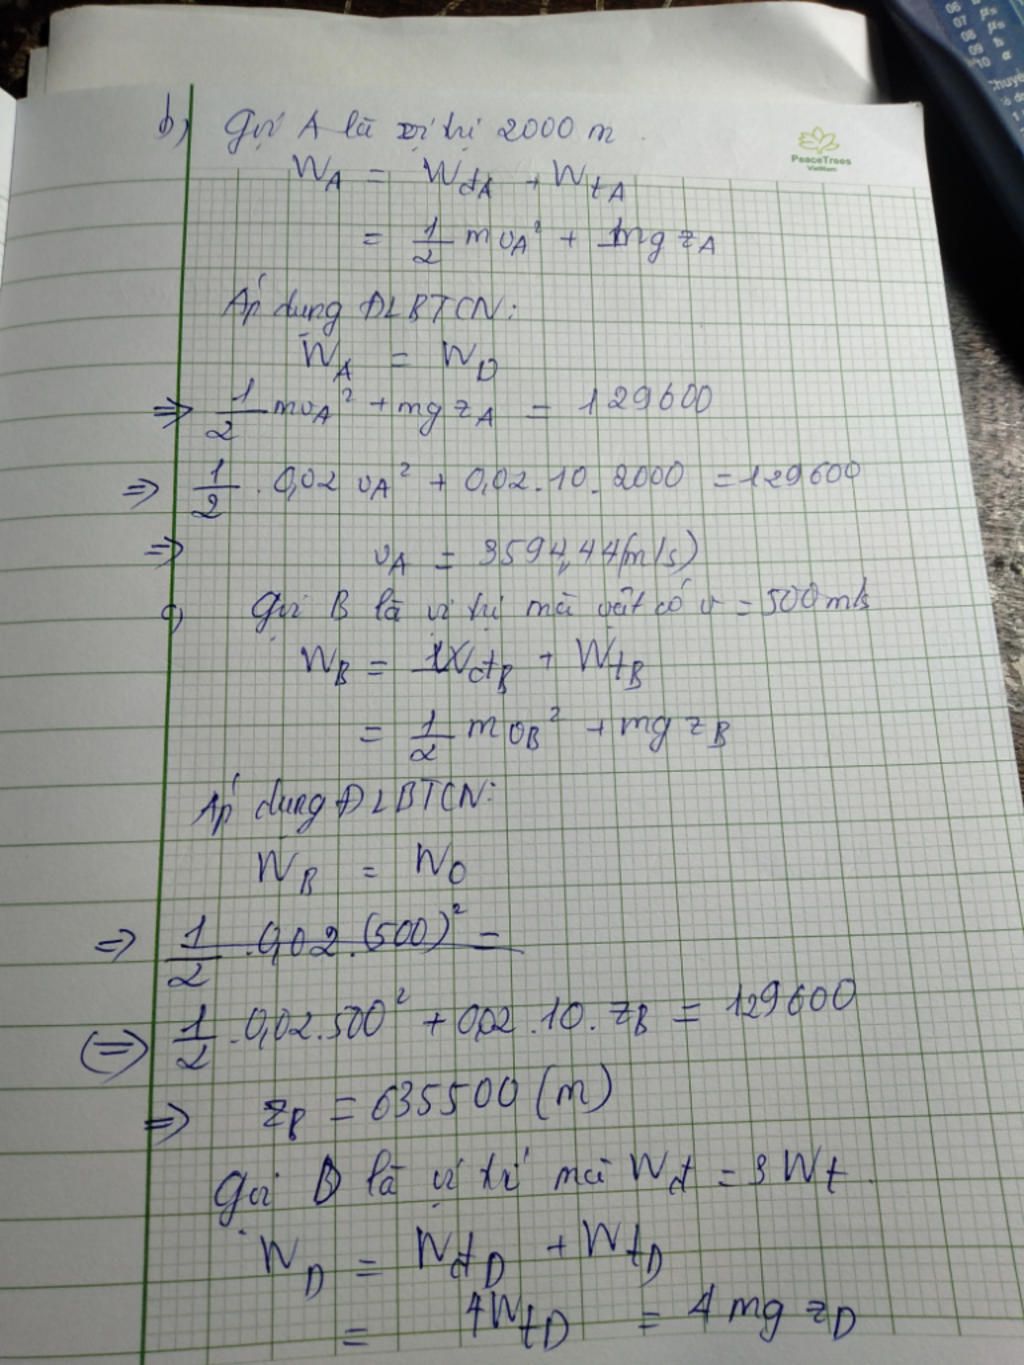 06
07
08
09
10
PeaceTrees
VietNam
b) Gọi A là vị trí 2000 m.
W_A = W_đA + W_tA
= 1/2 mv_A² + mgz_A
Áp dụng ĐLBTCN:
W_A = W_O
=> 1/2 mv_A² + mgz_A = 129600
=> 1/2 . 0,02 v_A² + 0,02.10.2000 = 129600
=> v_A = 3594,44 (m/s)
c) Gọi B là vị trí mà vật có v = 500 m/s
W_B = W_đB + W_tB
= 1/2 mv_B² + mgz_B
Áp dụng ĐLBTCN:
W_B = W_O
=> 1/2 . 0,02 . (500)² =
(=>) 1/2 . 0,02.500² + 0,02.10.z_B = 129600
=> z_B = 635500 (m)
Gọi D là vị trí mà W_đ = 3W_t.
W_D = W_đD + W_tD
= 4W_tD = 4mgz_D